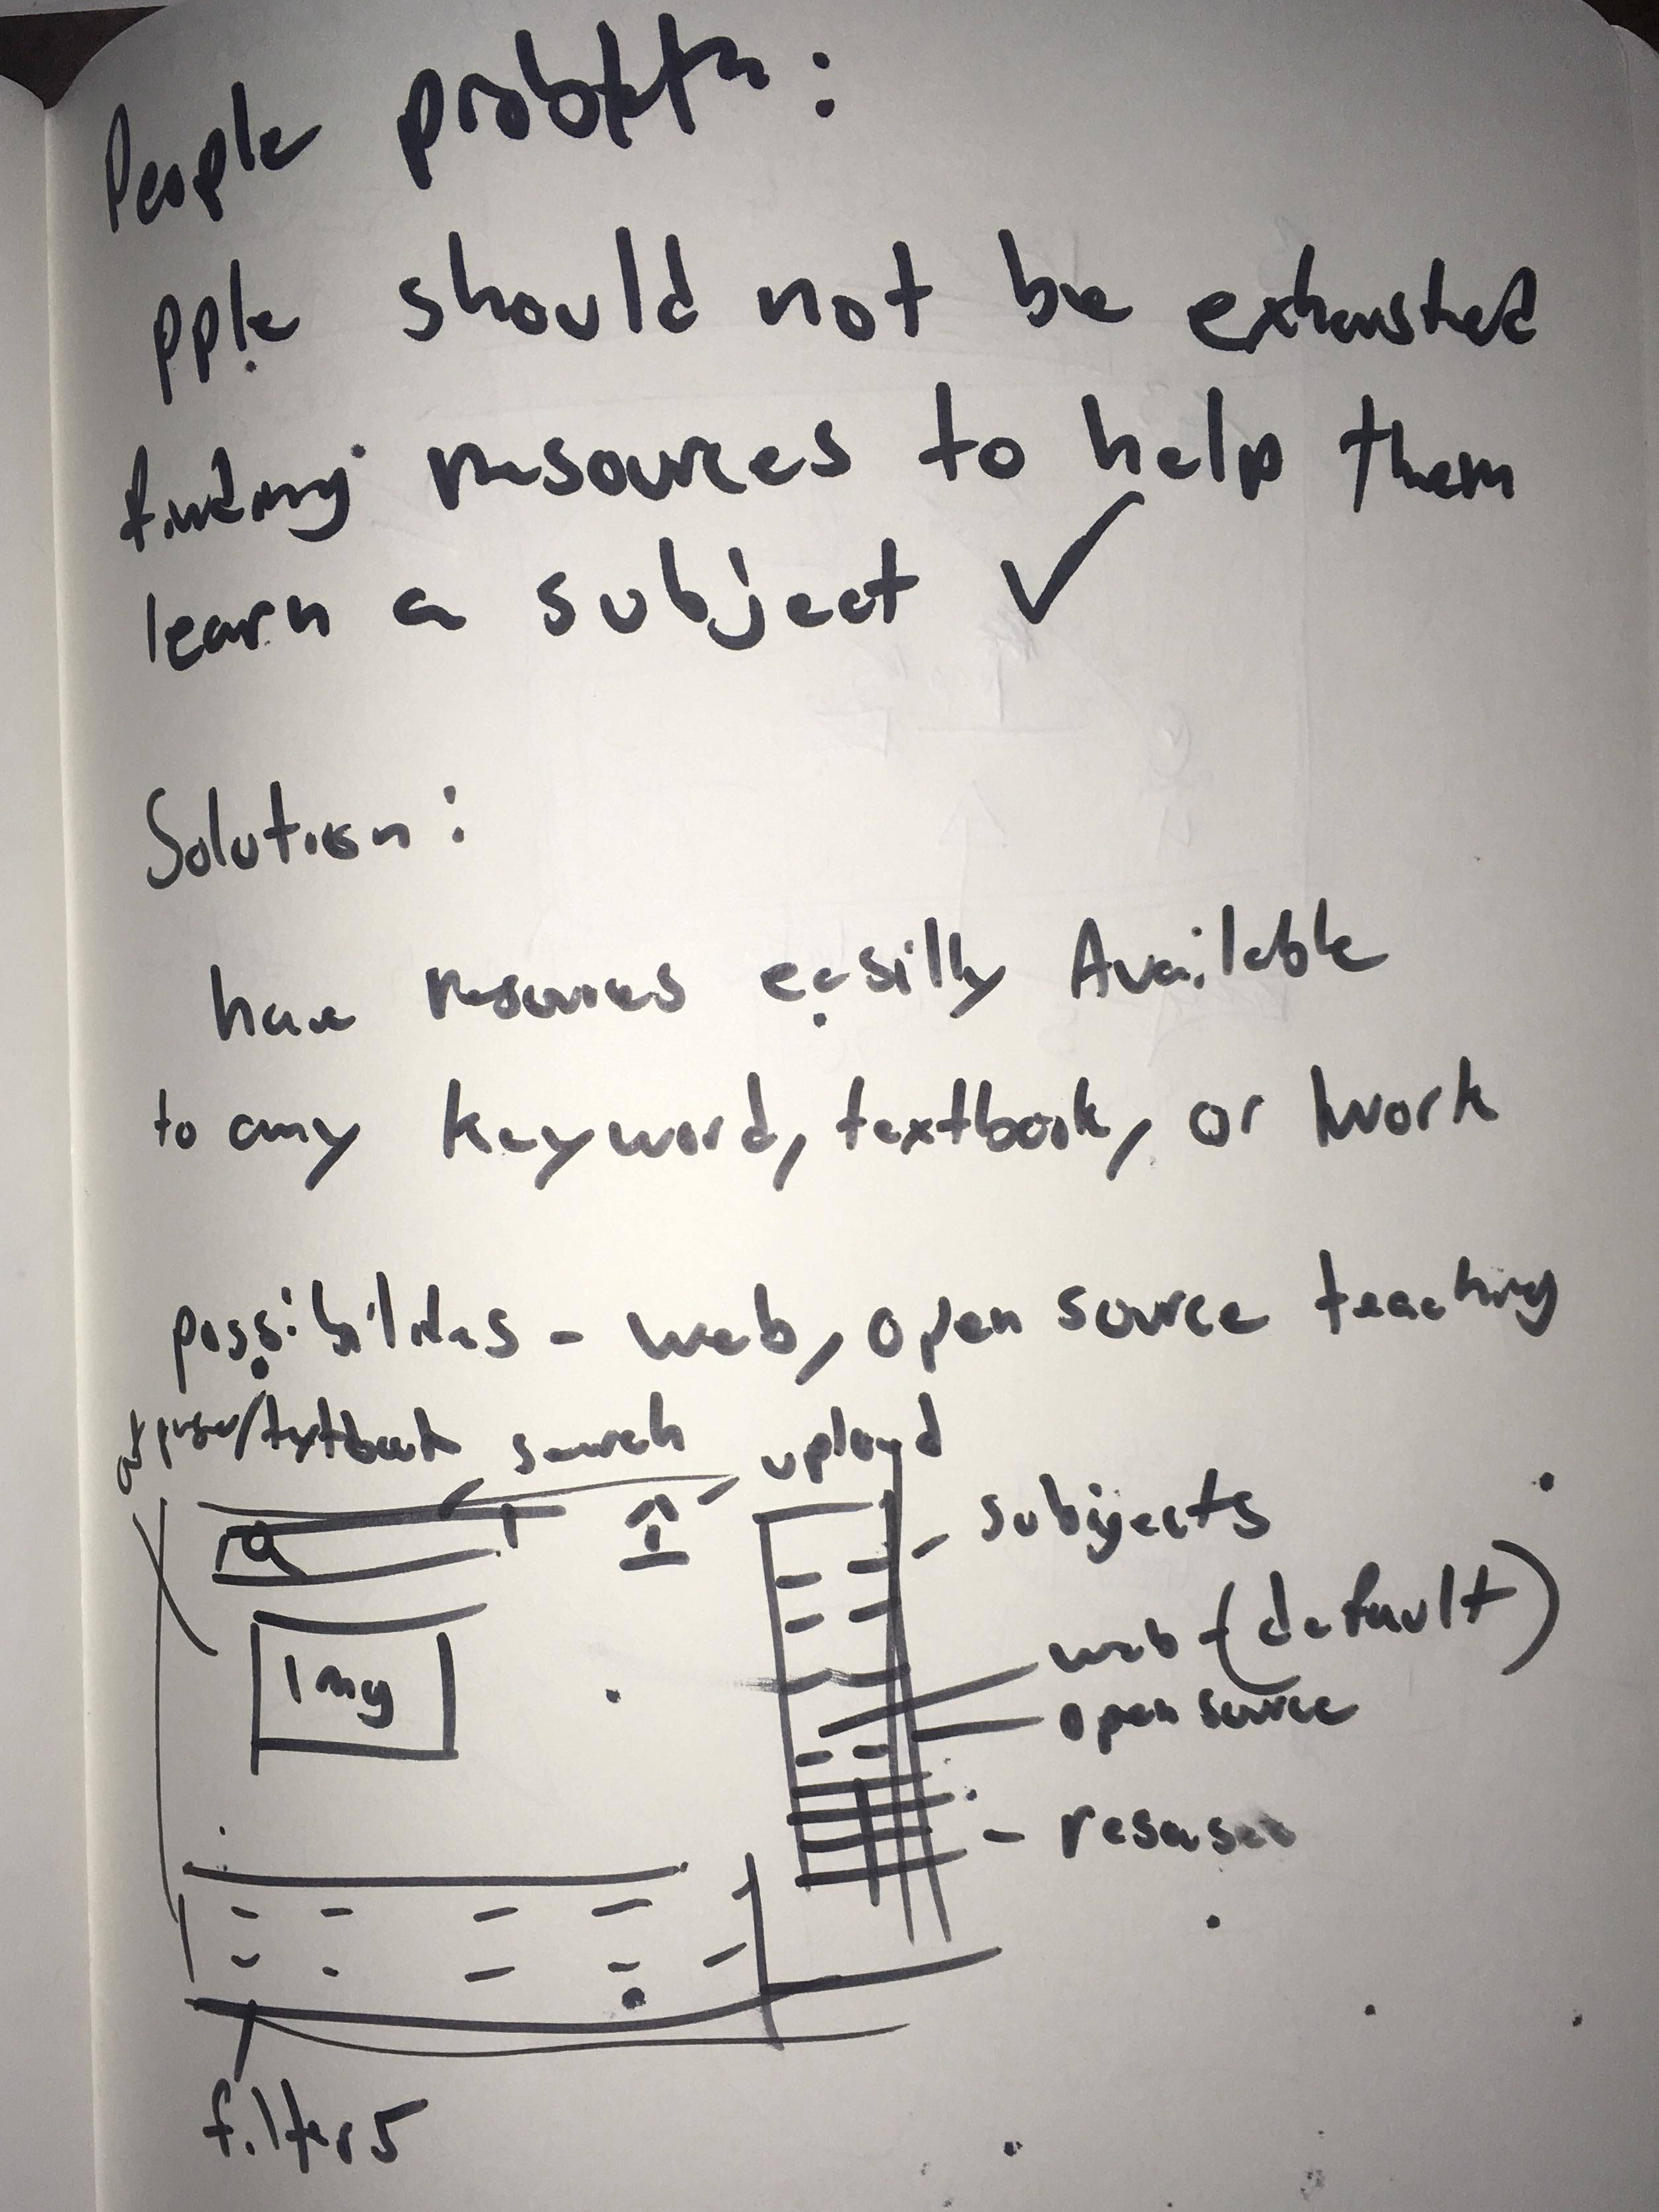 People problem:
pple should not be exhausted
finding resources to help them
learn a subject ✓
Solution:
have resources easilly Available
to any keyword, textbook, or work
possibilities - web, open source teaching
/textbook search upload
subijects
web - (default)
open source
Img
filters